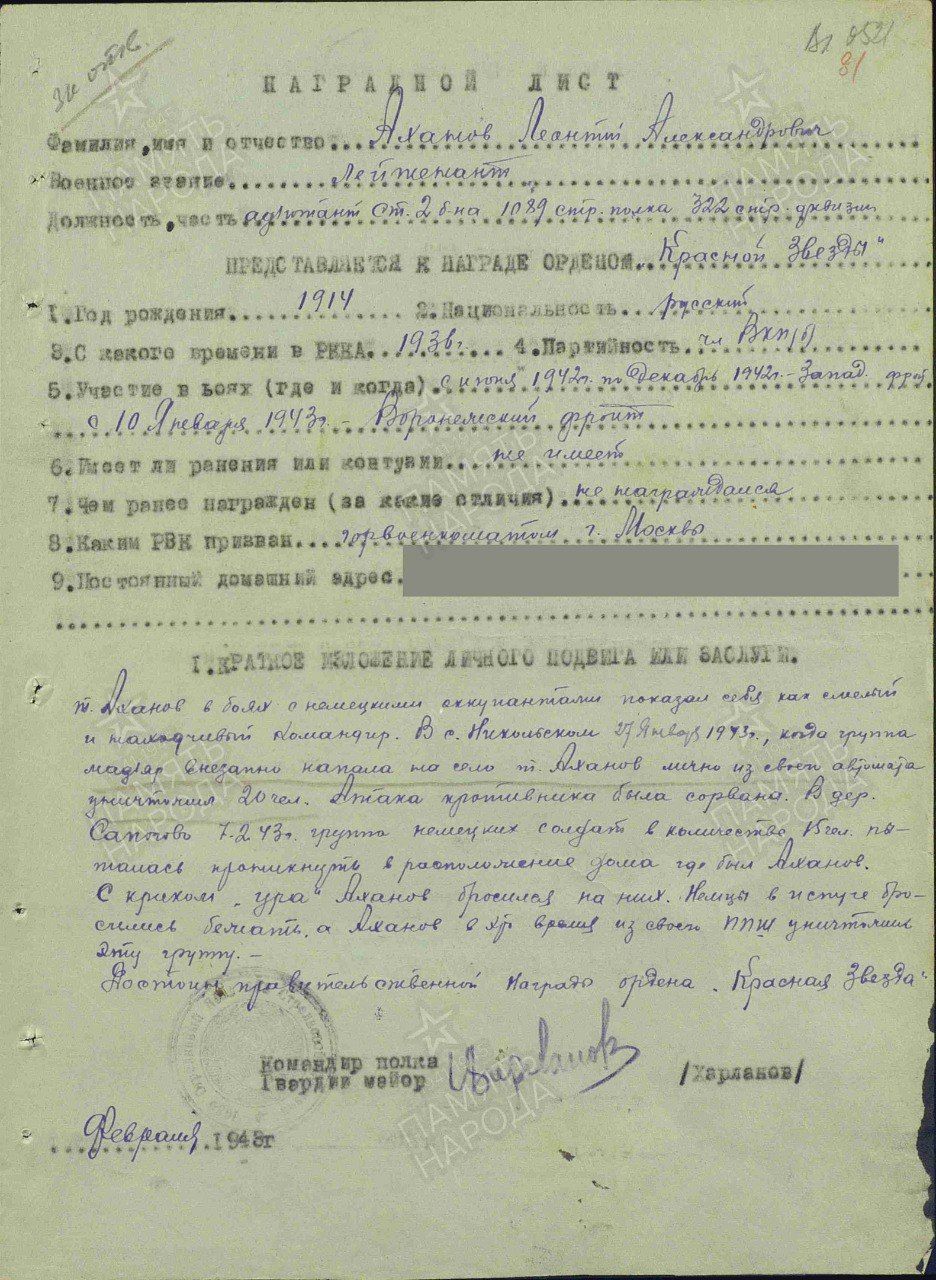 Зн отв.
Вл 0521
81
НАГРАДНОЙ ЛИСТ
Фамилия, имя и отчество Аханов Леонтий Александрович
Военное звание Лейтенант
Должность, часть адъютант ст. 2 б-на 1089 стр. полка 322 стр. дивизии
ПРЕДСТАВЛЯЕТСЯ К НАГРАДЕ ОРДЕНОМ "Красной Звезды"
1. Год рождения 1914 2. Национальность русский
3. С какого времени в РККА 1936г. 4. Партийность чл ВКП(б)
5. Участие в боях (где и когда) с июня 1942г. по декабрь 1942г. - Запад. фрон.
с 10 Января 1943г. - Воронежский фронт
6. Имеет ли ранения или контузии не имеет
7. Чем ранее награжден (за какие отличия) не награждался
8. Каким РВК призван горвоенкоматом г. Москвы
9. Постоянный домашний адрес.
I. КРАТКОЕ ИЗЛОЖЕНИЕ ЛИЧНОГО ПОДВИГА ИЛИ ЗАСЛУГИ.
т. Аханов в боях с немецкими оккупантами показал себя как смелый
и находчивый командир. В с. Никольском 27 Января 1943г., когда группа
мадьяр внезапно напала на село т. Аханов лично из своего автомата
уничтожил 20 чел. Атака противника была сорвана. В дер.
Сапогово 7-2 43г. группа немецких солдат в количестве 15 чел. пы-
талась проникнуть в расположение дома где был Аханов.
С криком "ура" Аханов бросился на них. Немцы в испуге бро-
сились бежать, а Аханов в время из своего ППШ уничтожил
эту группу. -
Достоин правительственной награды ордена "Красная Звезда"
Командир полка
Гвардии майор /Харланов/
Февраля 1943г
ПАМЯТЬ НАРОДА